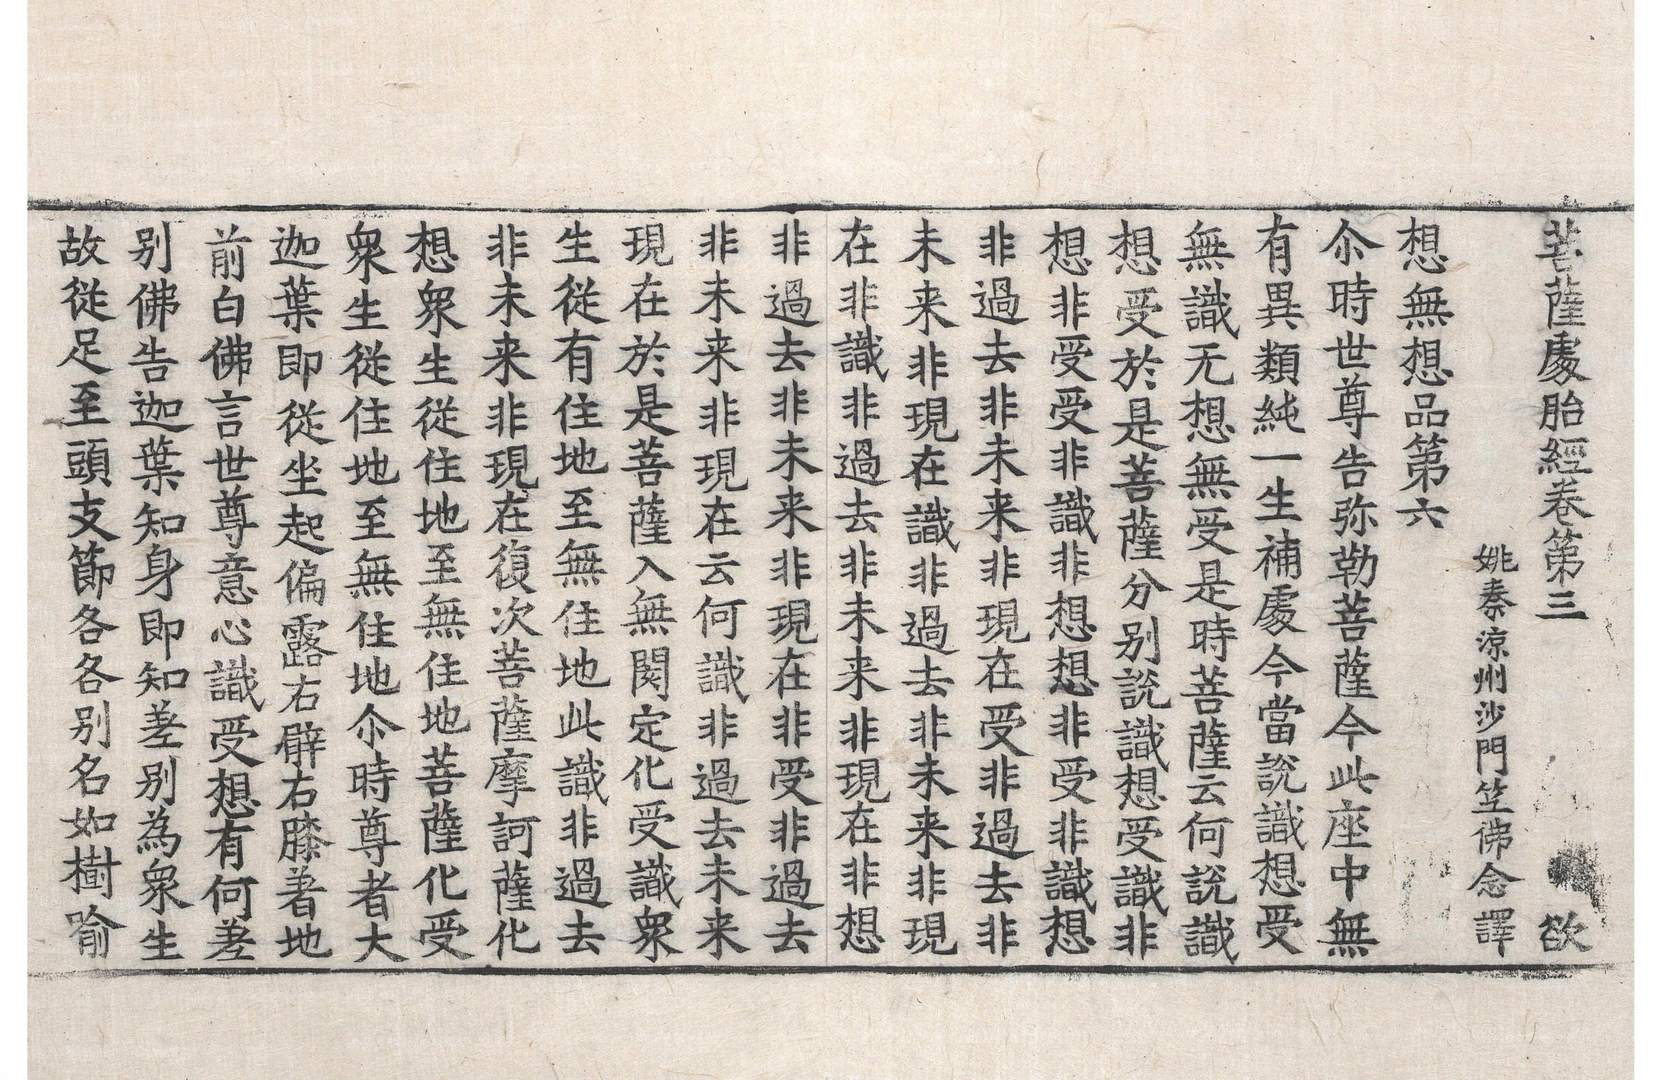 菩薩處胎經卷第三 欲
姚秦涼州沙門竺佛念譯
想無想品第六
尒時世尊告弥勒菩薩今此座中無
有異類純一生補處今當說識想受
無識无想無受是時菩薩云何說識
想受於是菩薩分別說識想受識非
想非受受非識非想想非受非識想
非過去非未来非現在受非過去非
未来非現在識非過去非未来非現
在非識非過去非未来非現在非想
非過去非未来非現在非受非過去
非未来非現在云何識非過去未来
現在於是菩薩入無閡定化受識衆
生從有住地至無住地此識非過去
非未来非現在復次菩薩摩訶薩化
想衆生從住地至無住地菩薩化受
衆生從住地至無住地尒時尊者大
迦葉即從坐起偏露右臂右膝著地
前白佛言世尊意心識受想有何差
别佛告迦葉知身即知差别為衆生
故從足至頭支莭各各别名如樹喻